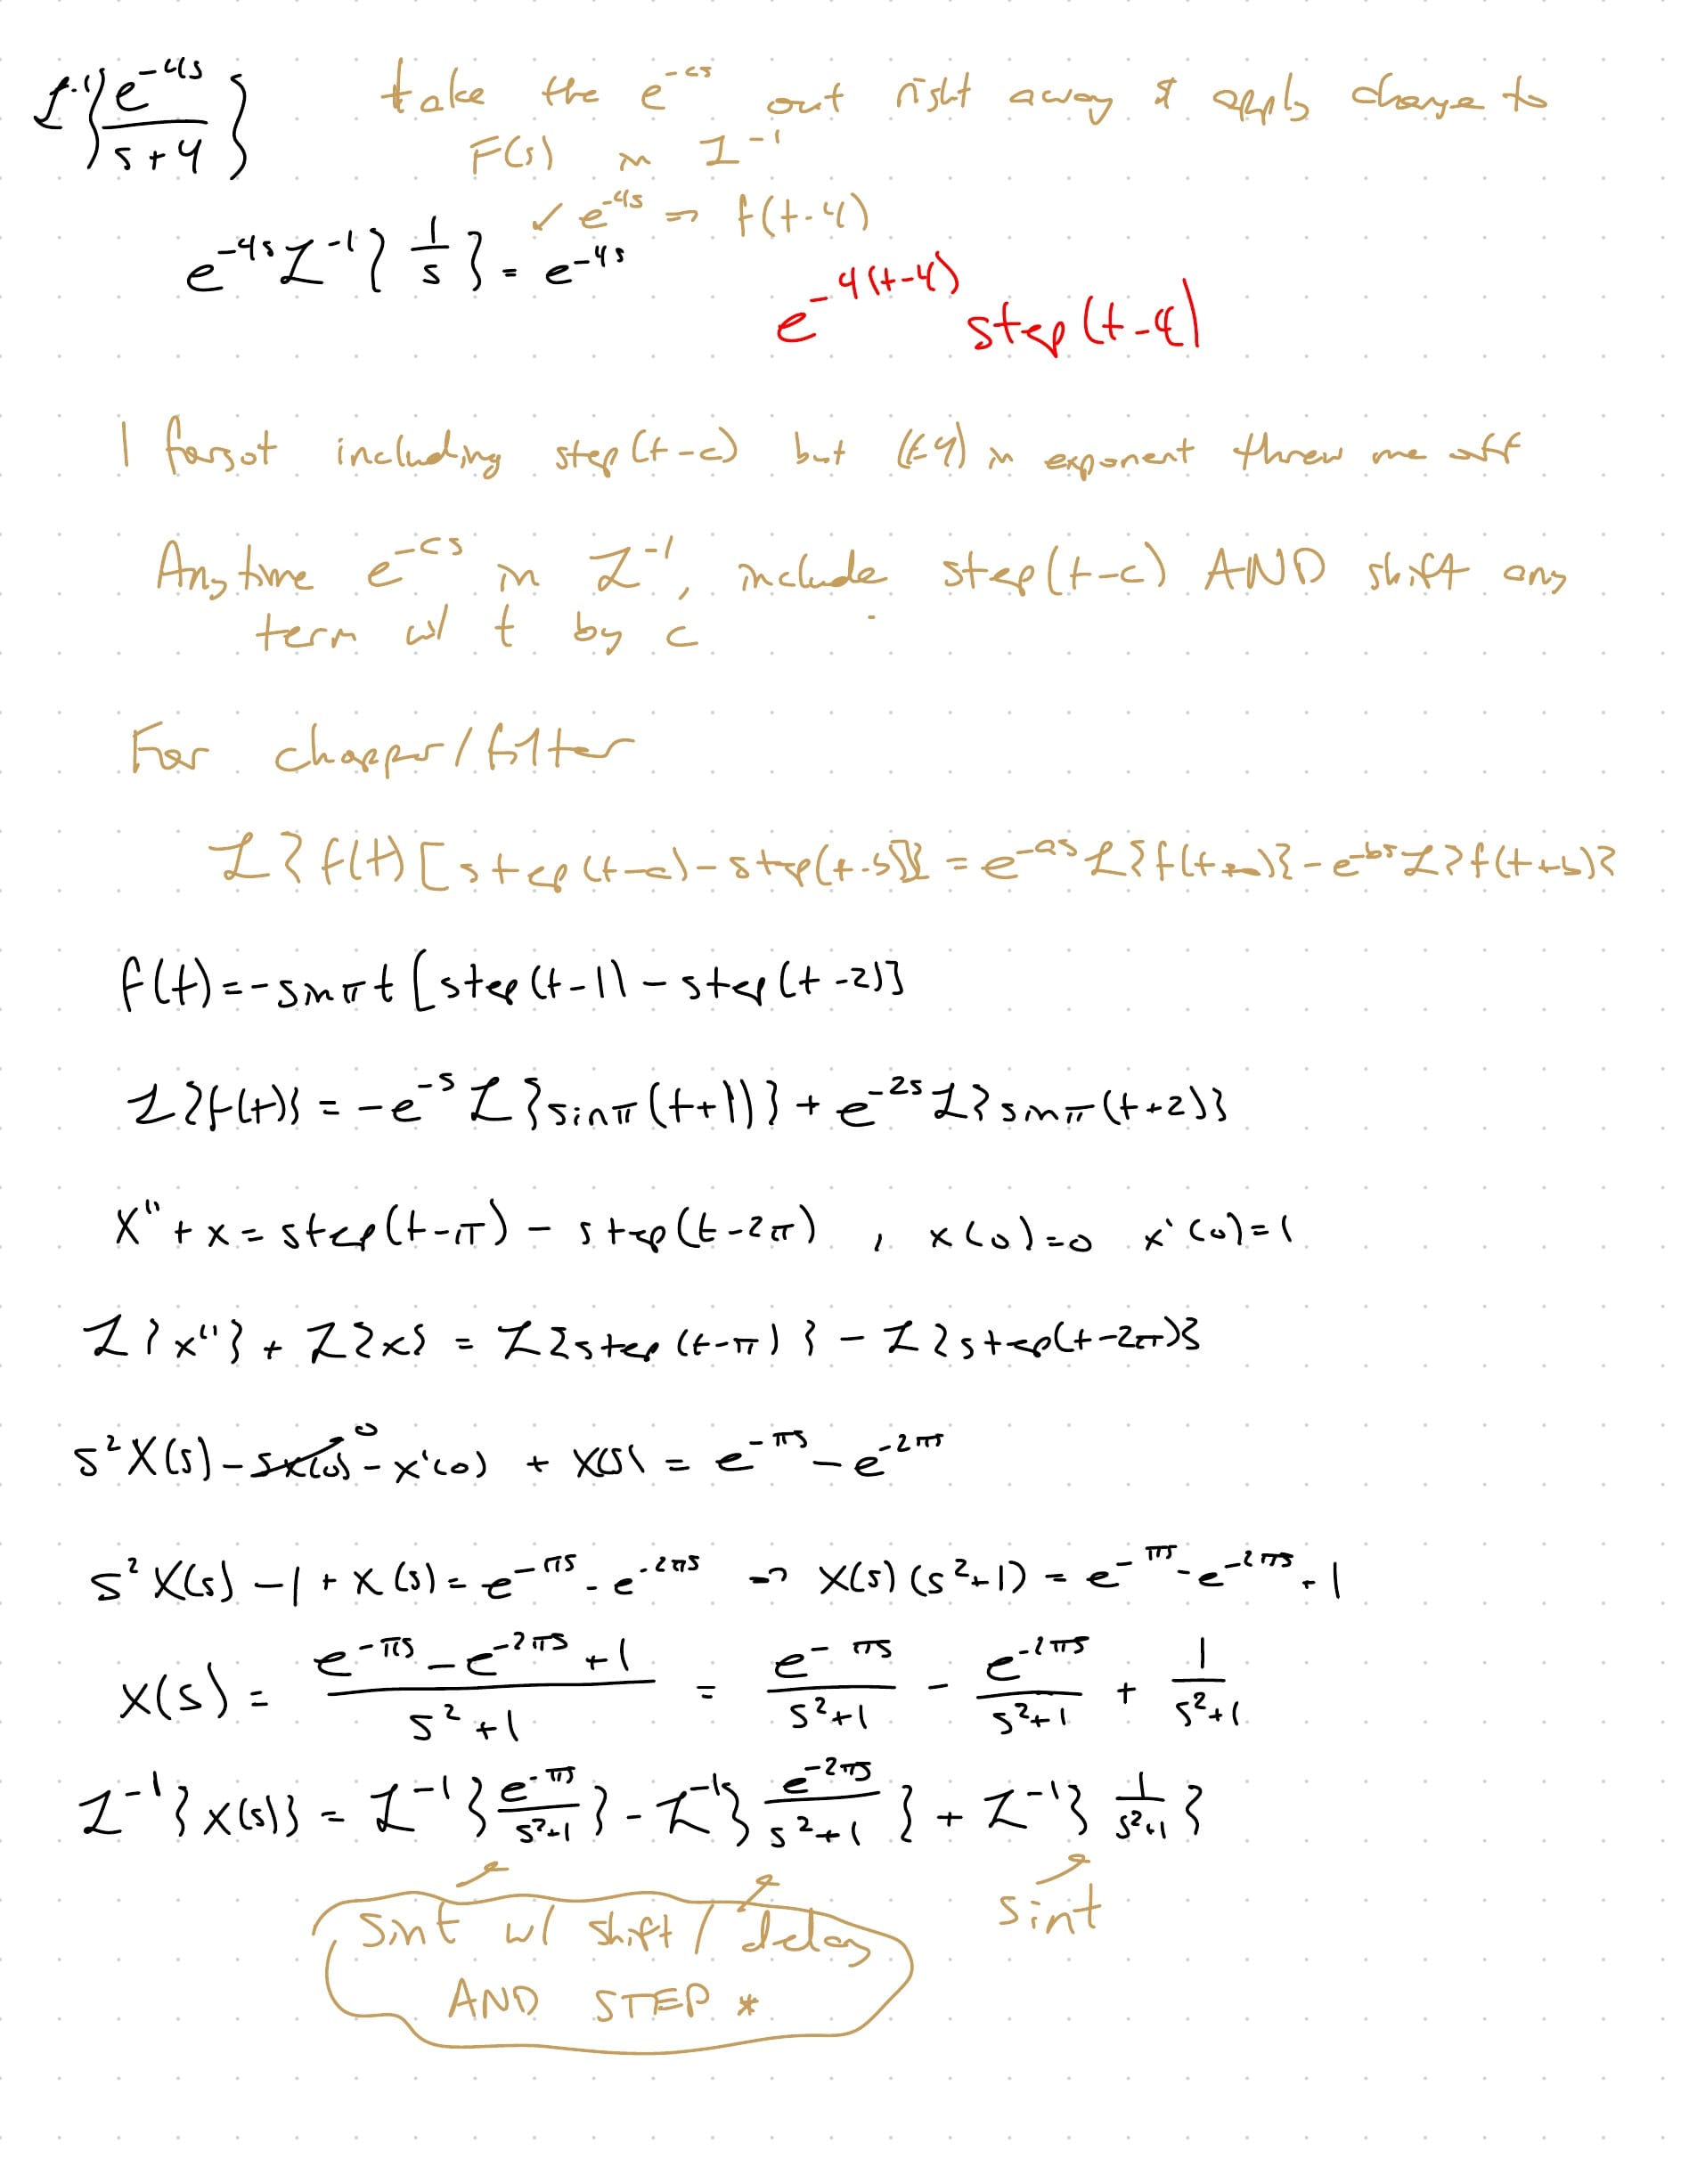 ℒ⁻¹{e^-4s / s+4} take the e^-cs out right away & apply change to
F(s) in ℒ⁻¹
✓ e^-4s ⇒ f(t-4)
e^-4s ℒ⁻¹{1/s} = e^-4s
e^-4(t-4) step(t-4)
I forgot including step(t-c) but (t-4) in exponent threw me off
Anytime e^-cs in ℒ⁻¹, include step(t-c) AND shift any
term w/ t by c
For chopper/filter
ℒ{f(t)[step(t-a)-step(t-b)]} = e^-as ℒ{f(t+a)} - e^-bs ℒ{f(t+b)}
f(t) = -sin πt [step(t-1) - step(t-2)]
ℒ{f(t)} = -e^-s ℒ{sin π(t+1)} + e^-2s ℒ{sin π(t+2)}
x'' + x = step(t-π) - step(t-2π), x(0)=0 x'(0)=1
ℒ{x''} + ℒ{x} = ℒ{step(t-π)} - ℒ{step(t-2π)}
s²X(s) - sx(0)⁰ - x'(0) + X(s) = e^-πs - e^-2πs
s²X(s) - 1 + X(s) = e^-πs - e^-2πs ⇒ X(s)(s²+1) = e^-πs - e^-2πs + 1
X(s) = e^-πs - e^-2πs + 1 / s²+1 = e^-πs / s²+1 - e^-2πs / s²+1 + 1 / s²+1
ℒ⁻¹{X(s)} = ℒ⁻¹{e^-πs / s²+1} - ℒ⁻¹{e^-2πs / s²+1} + ℒ⁻¹{1 / s²+1}
sint w/ shift / delay sint
AND STEP *